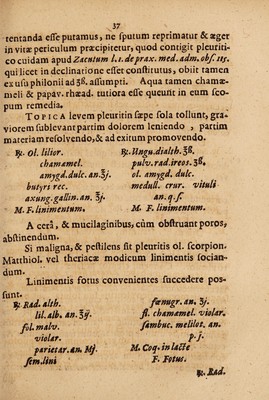 37
tentanda esse putamus, ne sputum reprimatur & æger
in vitæ periculum præcipitetur, quod contigit pleuriti-
co cuidam apud Zacutum l. 1. de prax. med. adm. obs. 115.
qui licet in declinatione esset constitutus, obiit tamen
ex usu philonii ad ʒß. assumpti. Aqua tamen chamæ-
meli & papav. rhœad. tutiora esse queunt in eum sco-
pum remedia.
TOPICA levem pleuritin sæpe sola tollunt, gra-
viorem sublevant partim dolorem leniendo, partim
materiam resolvendo, & ad exitum promovendo.
℞. Ol. lilior.
chamæmel.
amygd. dulc. an. ʒj.
butyri rec.
axung. gallin. an. ʒj.
M. F. linimentum.
℞. Ungu. dialth. ℥ß.
pulv. rad. ireos. ʒß.
ol. amygd. dulc.
medull. crur. vituli
an. q. s.
M. F. linimentum.
A cerâ, & mucilaginibus, cùm obstruant poros,
abstinendum.
Si maligna, & pestilens sit pleuritis ol. scorpion.
Matthiol. vel theriacæ modicum linimentis socian-
dum.
Linimentis fotus convenientes succedere pos-
sunt.
℞. Rad. alth.
lil. alb. an. ℥ß.
fol. malv.
violar.
parietar. an. Mj.
sem. lini
fœnugr. an. ʒj.
fl. chamæmel. violar.
sambuc. melilot. an.
p. j.
M. Coq. in lacte
F. Fotus.
℞. Rad.